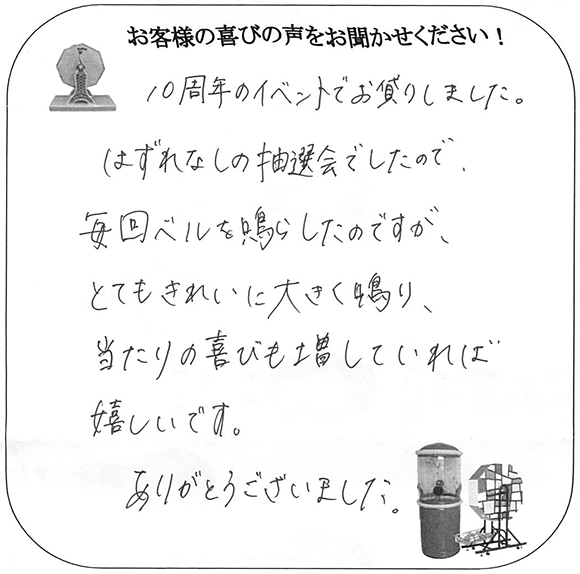 お客様の喜びの声をお聞かせください！
10周年のイベントでお貸りしました。
はずれなしの抽選会でしたので、
毎回ベルを鳴らしたのですが、
とてもきれいに大きく鳴り、
当たりの喜びも増していれば
嬉しいです。
ありがとうございました。